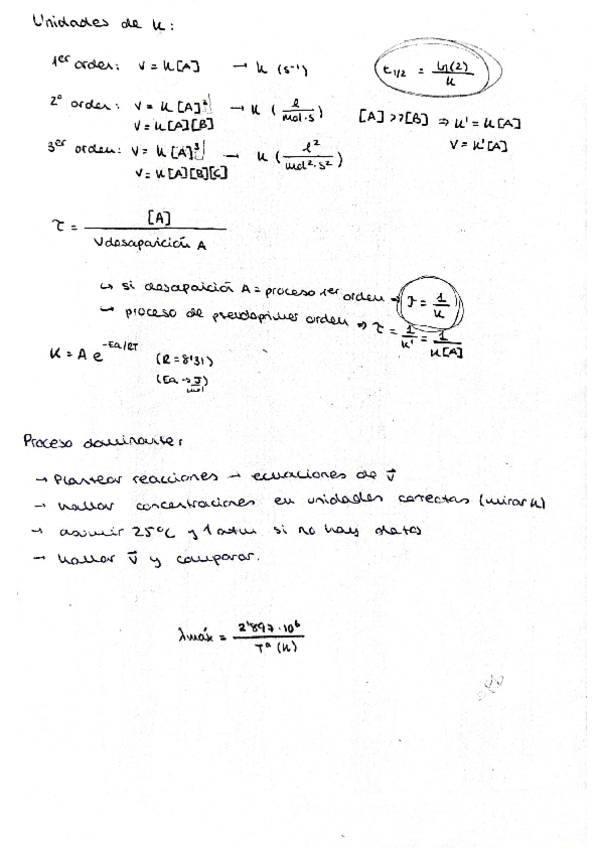 Unidades de k:
1er orden: v = k[A] → k (s⁻¹)
t1/2 = ln(2)/k
2º orden: v = k[A]² → k (l/mol·s)
v = k[A][B]
[A] >> [B] ⇒ k' = k[A]
v = k'[A]
3er orden: v = k[A]³ → k (l²/mol²·s²)
v = k[A][B][C]
τ = [A]/Vdesaparición A
↳ si desaparición A = proceso 1er orden → τ = 1/k
→ proceso de pseudoprimer orden ⇒ τ = 1/k' = 1/k[A]
k = A e^-Ea/RT (R = 8'31)
(Ea → J/mol)
Proceso dominante:
→ Plantear reacciones → ecuaciones de v⃗
→ hallar concentraciones en unidades correctas (mirar k)
→ asumir 25ºC y 1 atm si no hay datos
→ hallar v⃗ y comparar.
λmáx = 2'897·10⁶/Tª (k)